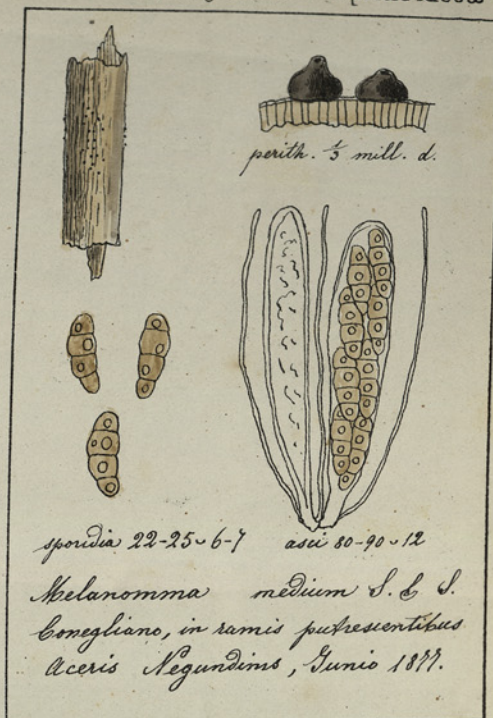 perith. ⅓ mill. d.
sporidia 22-25 ᴗ 6-7
asci 80-90 ᴗ 12
Melanomma medium S. & S.
Conegliano, in ramis putrescentibus
Aceris Negundinis, Junio 1877.